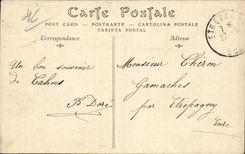 Carte Postale
POST CARD — POSTKARTE — CARTOLINA POSTALE
TARJETA POSTAL
Correspondance
Adresse
Un bon souvenir
de Cahors
B Doré
Monsieur Chéron
Gamaches
par Etrepagny
Eure